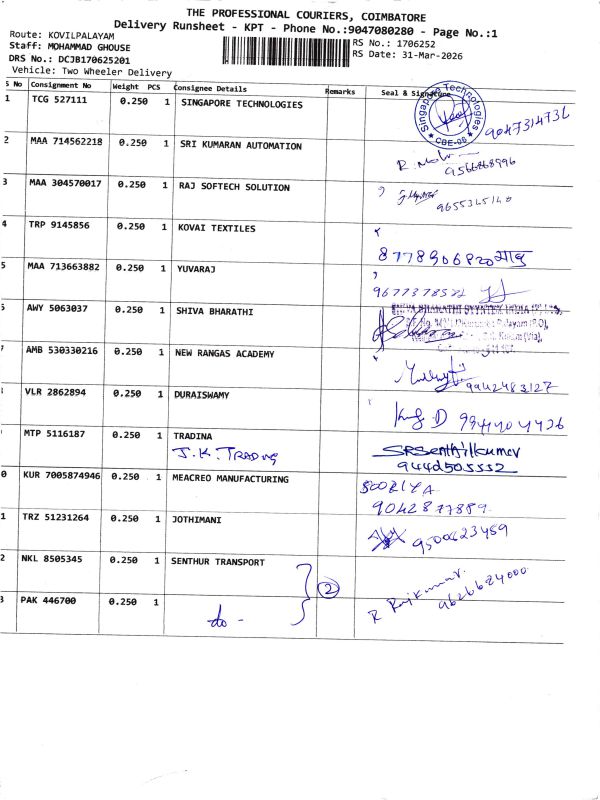 THE PROFESSIONAL COURIERS, COIMBATORE
Delivery Runsheet - KPT - Phone No.:9047080280 - Page No.:1
Route: KOVILPALAYAM
Staff: MOHAMMAD GHOUSE
RS No.: 1706252
DRS No.: DCJB170625201
RS Date: 31-Mar-2026
Vehicle: Two Wheeler Delivery
S No Consignment No Weight PCS Consignee Details Remarks Seal & Signature
1 TCG 527111 0.250 1 SINGAPORE TECHNOLOGIES
Singapore Technologies
CBE-08
2 MAA 714562218 0.250 1 SRI KUMARAN AUTOMATION
9566868996
3 MAA 304570017 0.250 1 RAJ SOFTECH SOLUTION
4 TRP 9145856 0.250 1 KOVAI TEXTILES
8778906820
5 MAA 713663882 0.250 1 YUVARAJ
6 AWY 5063037 0.250 1 SHIVA BHARATHI
7 AMB 530330216 0.250 1 NEW RANGAS ACADEMY
9942483127
VLR 2862894 0.250 1 DURAISWAMY
MTP 5116187 0.250 1 TRADINA
J.K. TRADING
SRSenthilkumar
0 KUR 7005874946 0.250 1 MEACREO MANUFACTURING
9042877889
1 TRZ 51231264 0.250 1 JOTHIMANI
9500623459
2 NKL 8505345 0.250 1 SENTHUR TRANSPORT
2
R Rajkumar.
9626624000
3 PAK 446700 0.250 1
do -